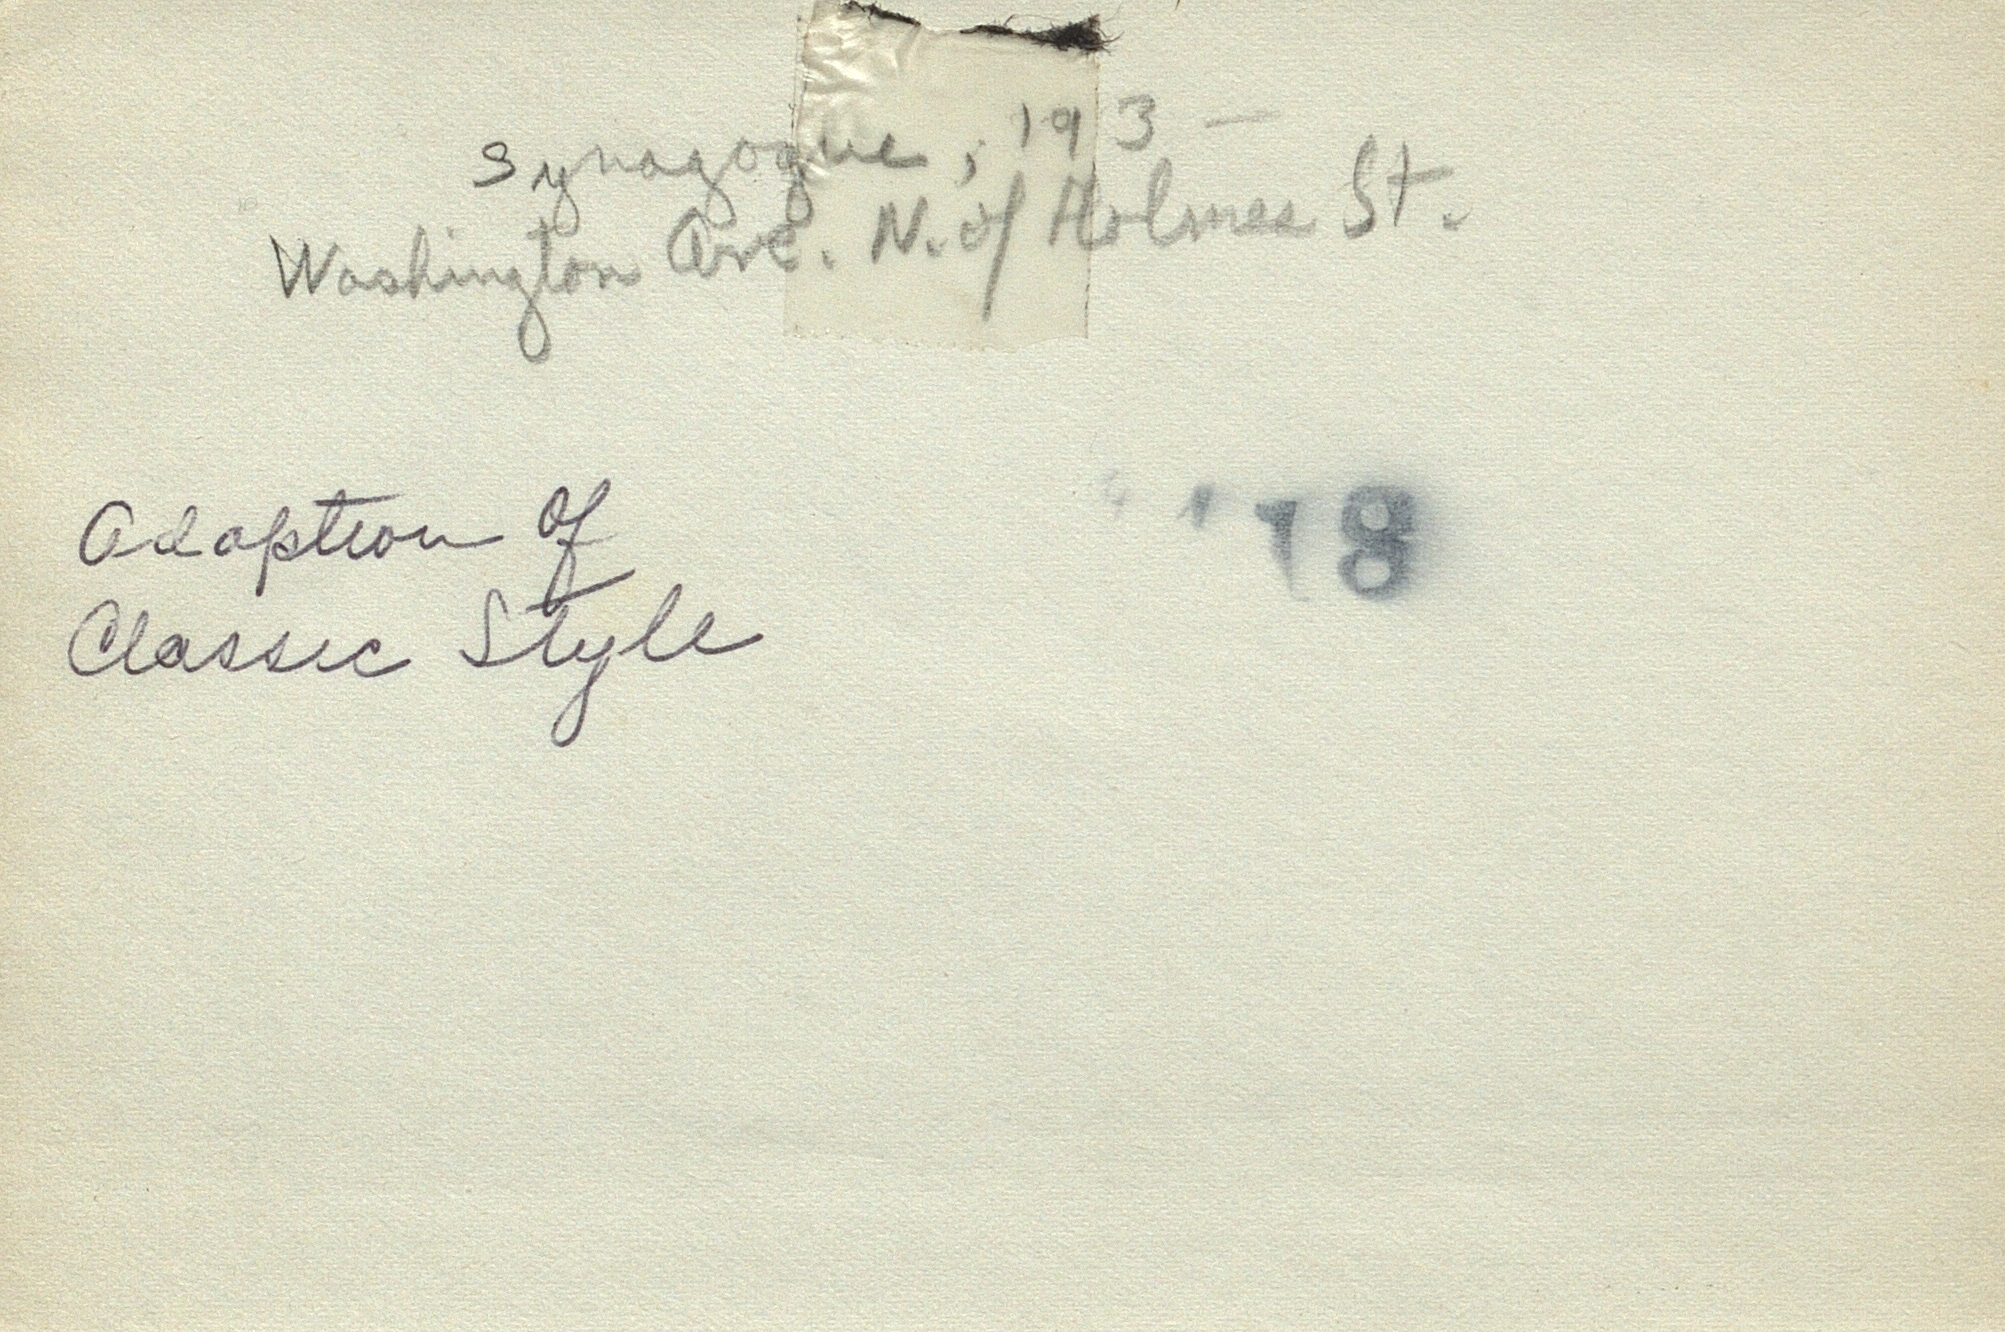 Synagogue, 193 —
Washington Ave. N. of Holmes St.
Adaption of
Classic Style
18